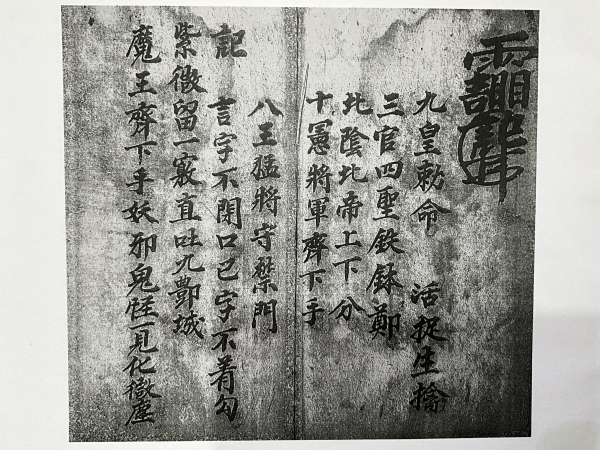 九皇勅命　活捉生擒
三官四聖鉄鉢鄭
北陰北帝上下分
十惡將軍齊下手
八王猛將守禁門
記　言字不閉口己字不着勾
紫微留一竅直吐九酆城
魔王齊下手妖邪鬼怪一見化微塵